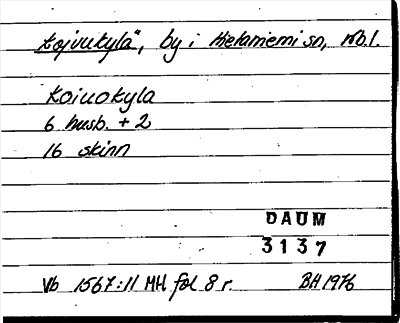 Koivukylä, by i Hietaniemi sn, Nb.l.
Koiuokyla
6 husb. + 2
16 skinn
DAUM
3137
Vb 1567:11 MH fol 8 r. BH 1976